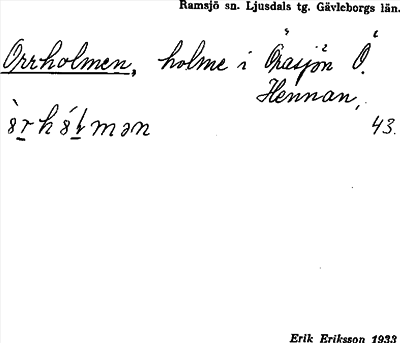 Ramsjö sn. Ljusdals tg. Gävleborgs län.
Orrholmen, holme i Öråsjön Ö.
Hennan,
43.
Erik Eriksson 1933